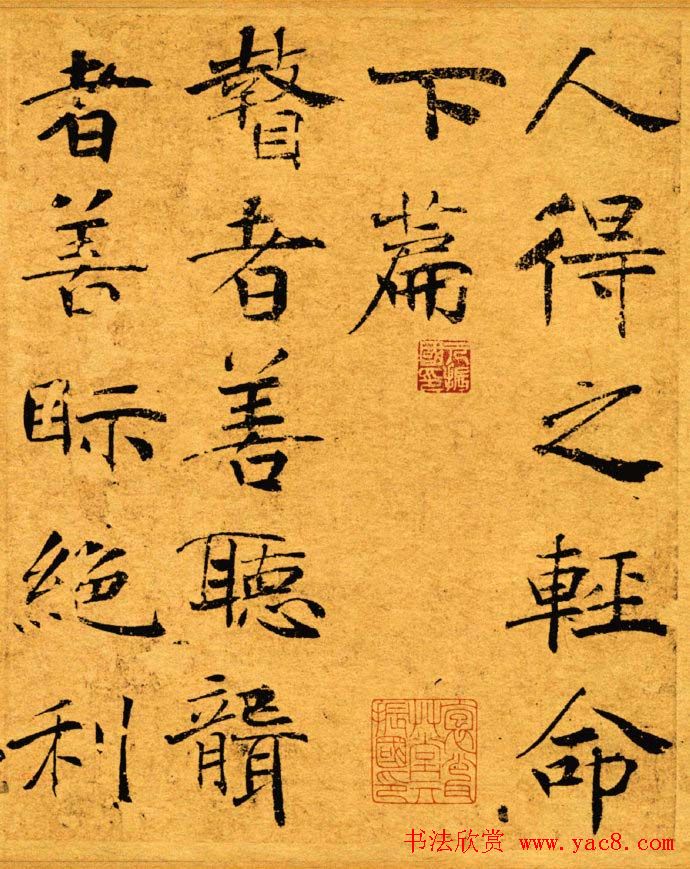 人得之輕命
下篇
瞽者善聽聾
者善眎絶利
书法欣赏 www.yac8.com